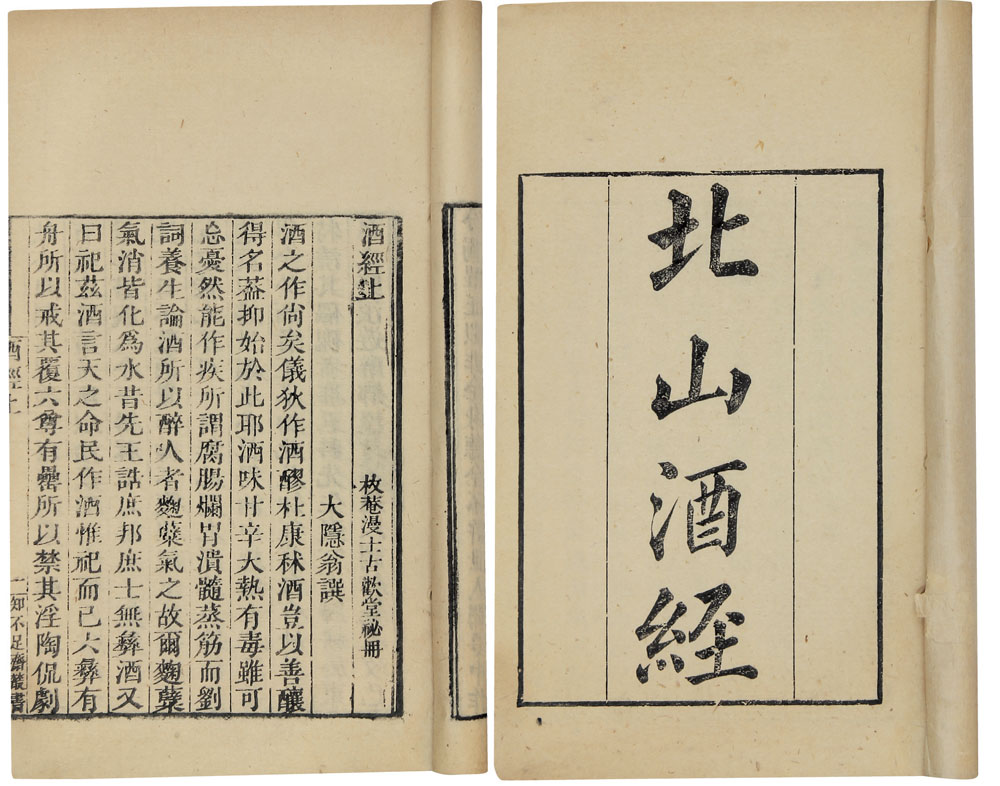 北山酒経
酒經上
枚菴漫士古歡堂祕冊
大隱翁譔
酒之作尙矣儀狄作酒醪杜康秫酒豈以善釀
得名葢抑始於此耶酒味甘辛大熱有毒雖可
忘憂然能作疾所謂腐腸爛胃潰髓蒸筋而劉
詞養生論酒所以醉人者麴糵氣之故爾麴糵
氣消皆化爲水昔先王誥庶邦庶士無彝酒又
曰祀茲酒言天之命民作酒惟祀而已六彝有
舟所以戒其覆六尊有罍所以禁其淫陶侃劇
酒經上
一知不足齋叢書